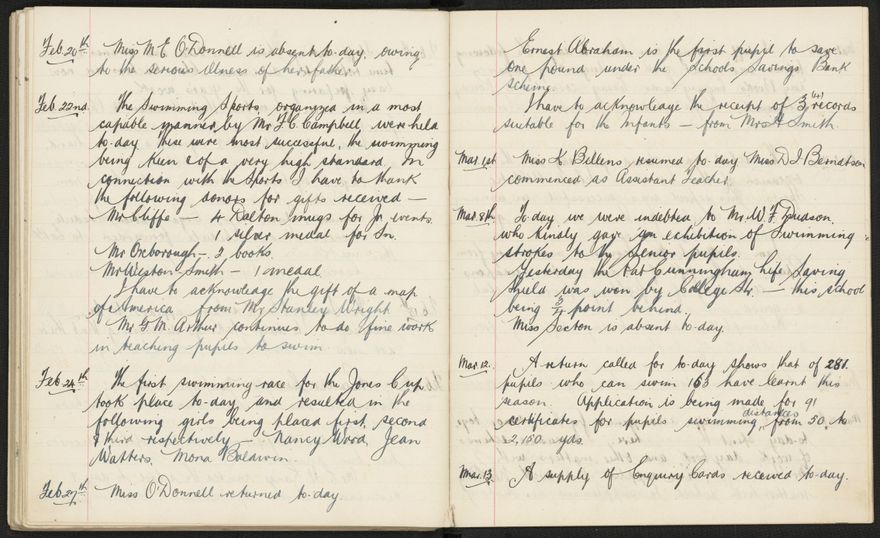 Feb. 20th Miss M E O'Donnell is absent to-day, owing
to the serious illness of her father.
Feb. 22nd. The Swimming Sports, organized in a most
capable manner by Mr J. C. Campbell, were held
to-day. These were most successful, the swimming
being keen & of a very high standard. In
connection with the Sports I have to thank
the following donors for gifts received —
Mr Cliffe — 4 Dalton mugs for Jr. events.
1 silver medal for Sn.
Mr Oxborough — 2 books.
Mr Weston Smith — 1 medal
I have to acknowledge the gift of a map
of America from Mr Stanley Wright.
Mr G. M. Arthur continues to do fine work
in teaching pupils to swim.
Feb. 24th The first swimming race for the Jones Cup
took place to-day and resulted in the
following girls being placed first, second
& third respectively — Nancy Wood, Jean
Watters, Mona Baldwin.
Feb. 27th Miss O'Donnell returned to-day.
Ernest Abraham is the first pupil to save
one pound under the Schools Savings Bank
scheme.
I have to acknowledge the receipt of 3 records
suitable for the Infants — from Mrs A Smith.
Mar. 1st Miss K. Bellens resumed to-day. Miss D I Berndtson
commenced as Assistant Teacher.
Mar. 8th To-day we were indebted to Mr W. F. Dudson,
who kindly gave an exhibition of Swimming
strokes to the senior pupils.
Yesterday the Pat Cunningham Life Saving
Shield was won by College St. — this school
being 3/4 point behind.
Miss Sexton is absent to-day.
Mar. 12. A return called for to-day shows that of 281
pupils who can swim 163 have learnt this
season. Application is being made for 91
certificates for pupils swimming distances from 50 to
2,150 yds.
Mar. 13. A supply of Enquiry Cards received to-day.